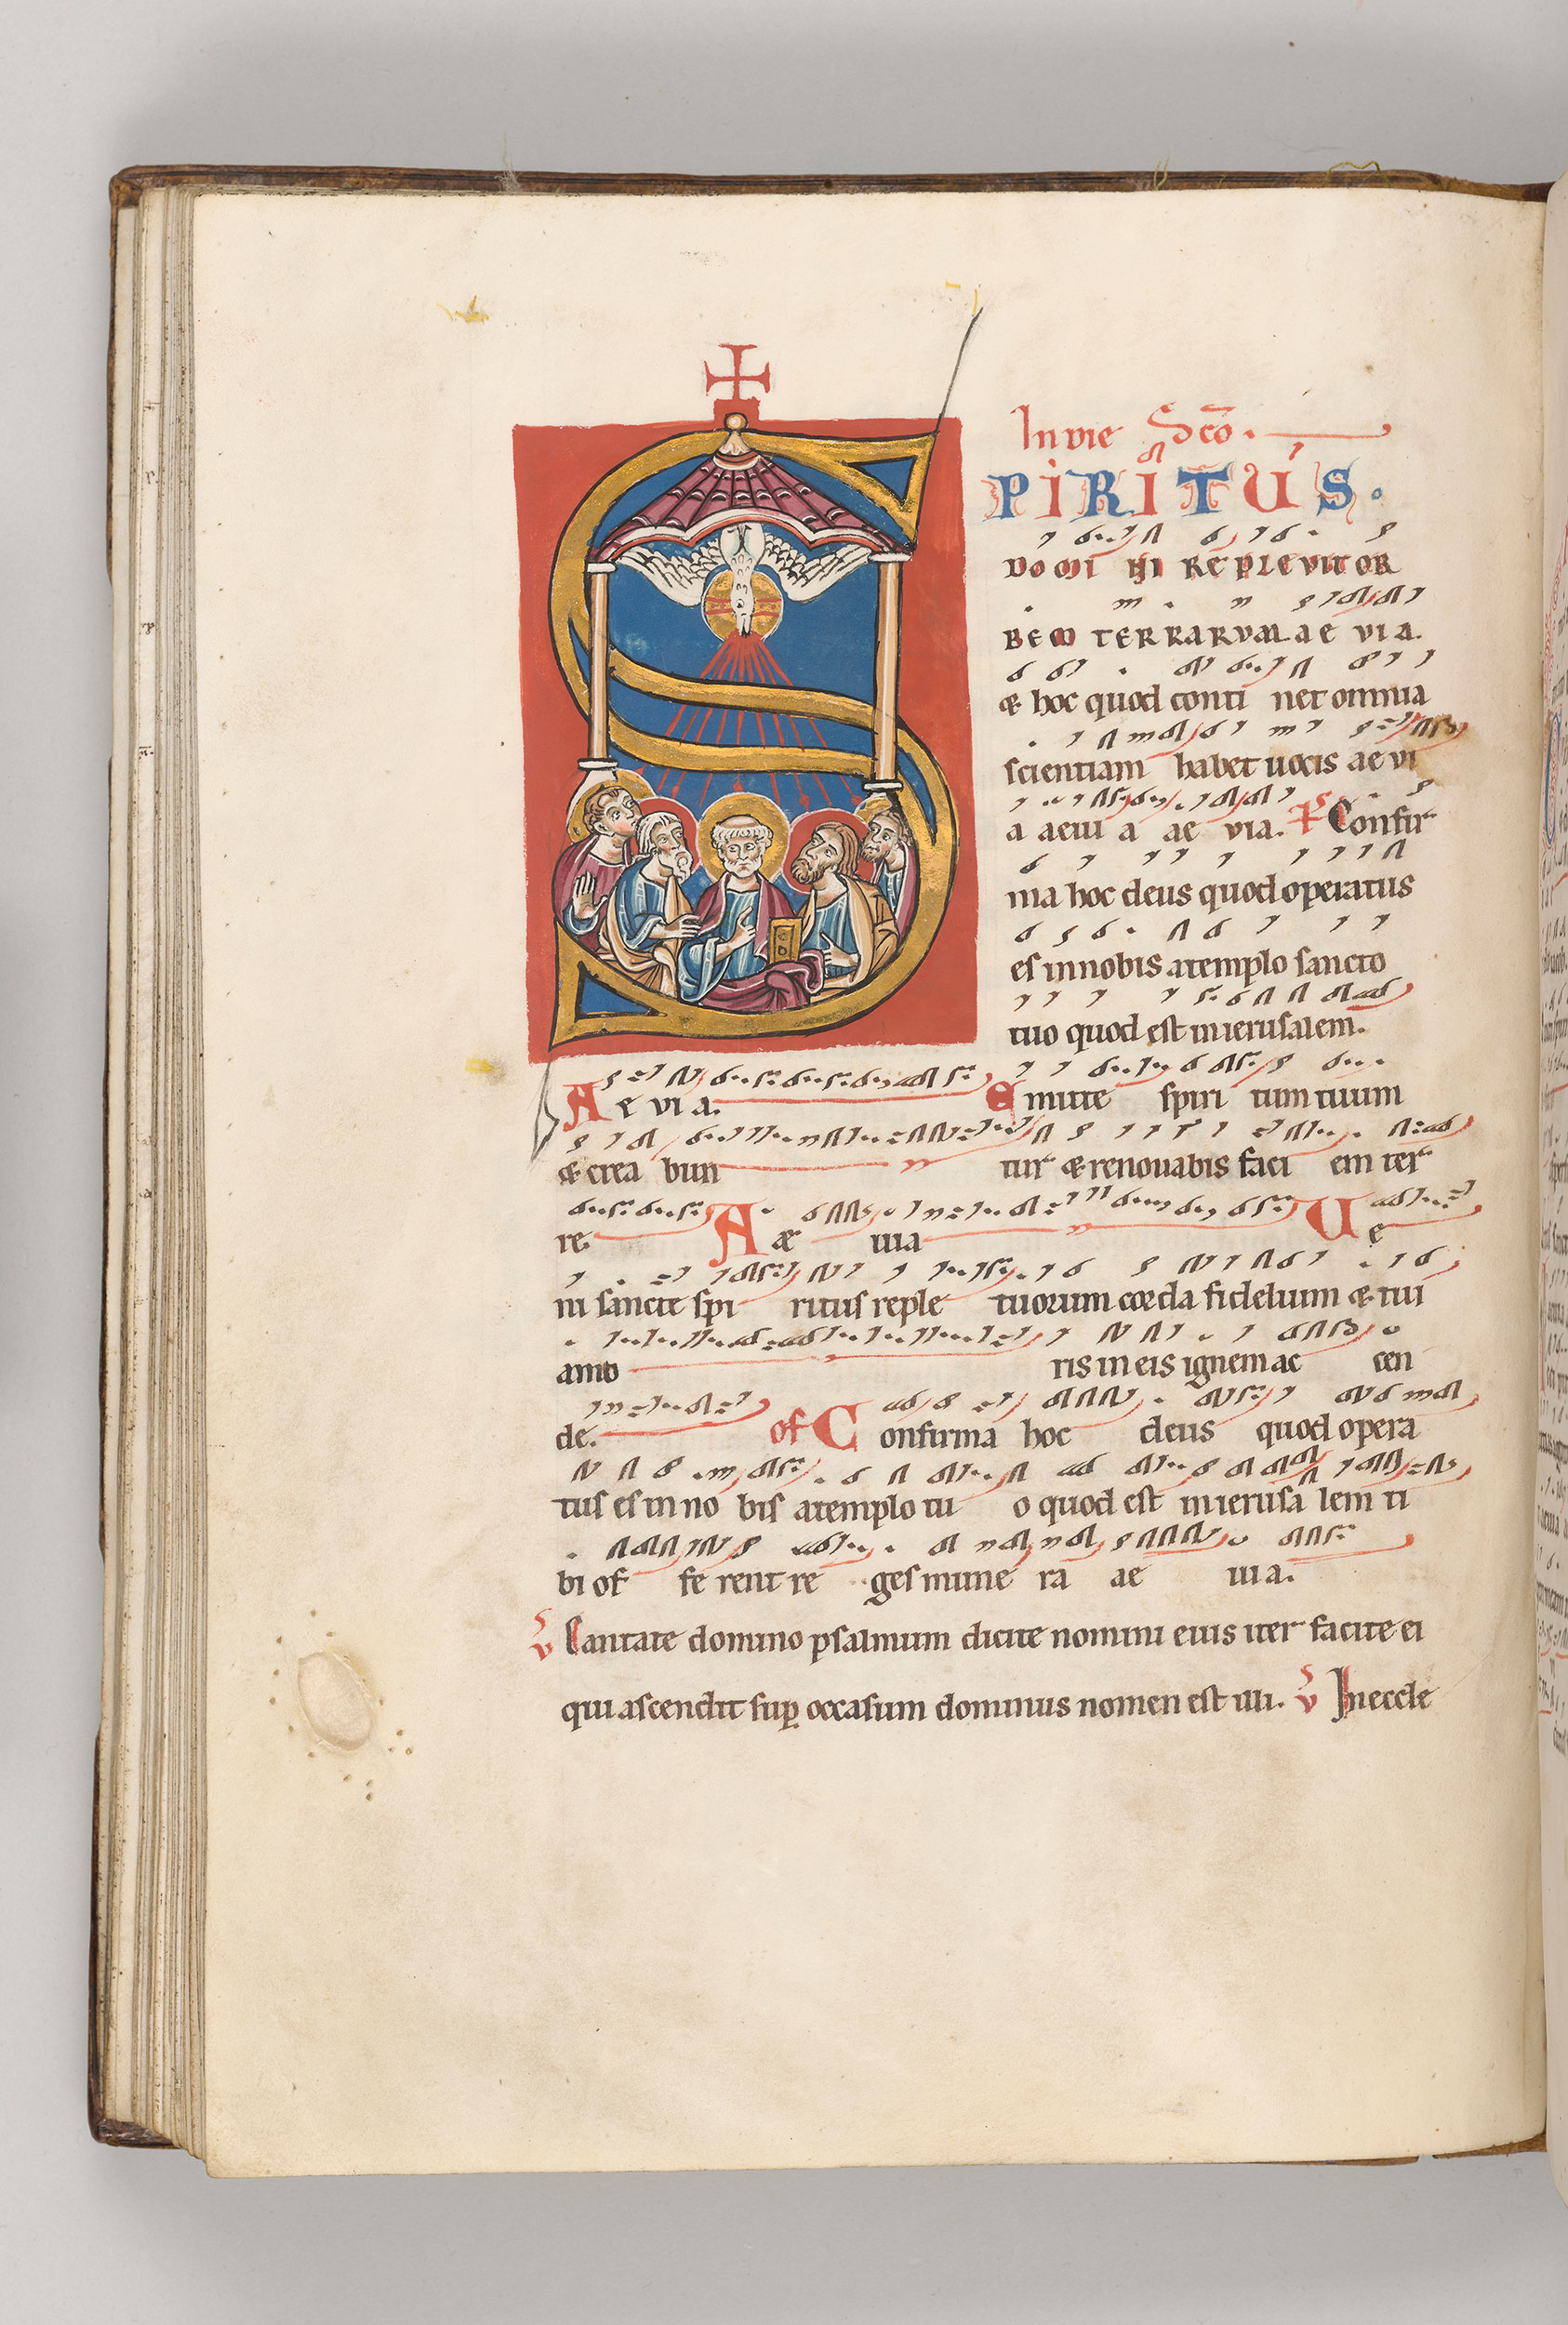 In die Sco.
SPIRITUS.
DOMINI REPLEVIT OR
BEM TERRARUM. ae via.
& hoc quod conti net omnia
scientiam habet uocis ae vi
a aeui a ae via. Confir
ma hoc deus quod operatus
es in nobis a templo sancto
tuo quod est in ierusalem.
A e vi a. Emitte spiri tum tuum
& crea bun tur & renouabis faci em ter
re. A æ uia U e
ni sancte spi ritus reple tuorum corda fidelium & tui
amo ris in eis ignem ac cen
de. of Confirma hoc deus quod opera
tus es in no bis a templo tu o quod est in ierusa lem ti
bi of fe rent re ges mune ra ae uia.
v Cantate domino psalmum dicite nomini eius iter facite ei
qui ascendit sup occasum dominus nomen est illi. v In eccle